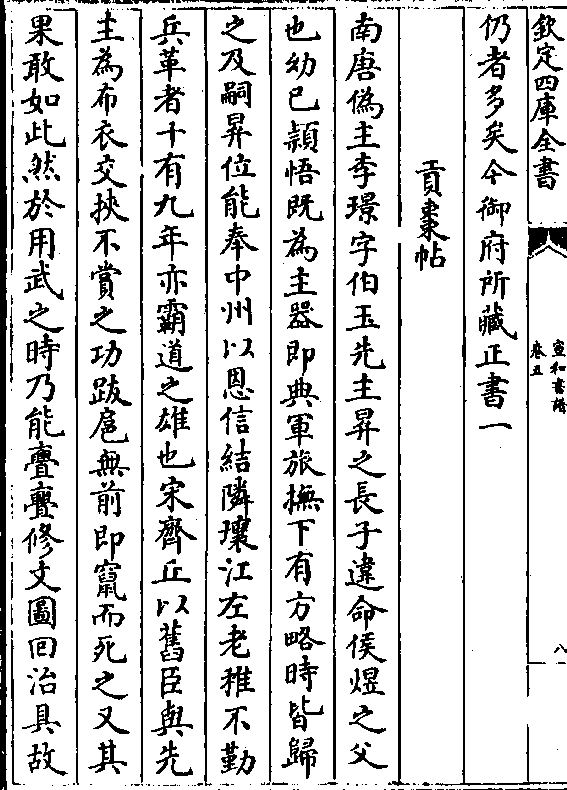 欽定四庫全書
宣和書譜
卷五
八
仍者多矣今御府所藏正書一
貢棗帖
南唐偽主李璟字伯玉先主昇之長子違命侯煜之父
也幼已頴悟既為主器即典軍旅撫下有方略時皆歸
之及嗣昇位能奉中州以恩信結隣壤江左老稚不勤
兵革者十有九年亦霸道之雄也宋齊丘以舊臣與先
主為布衣交挾不賞之功跋扈無前即竄而死之又其
果敢如此然於用武之時乃能亹亹修文圖回治具故